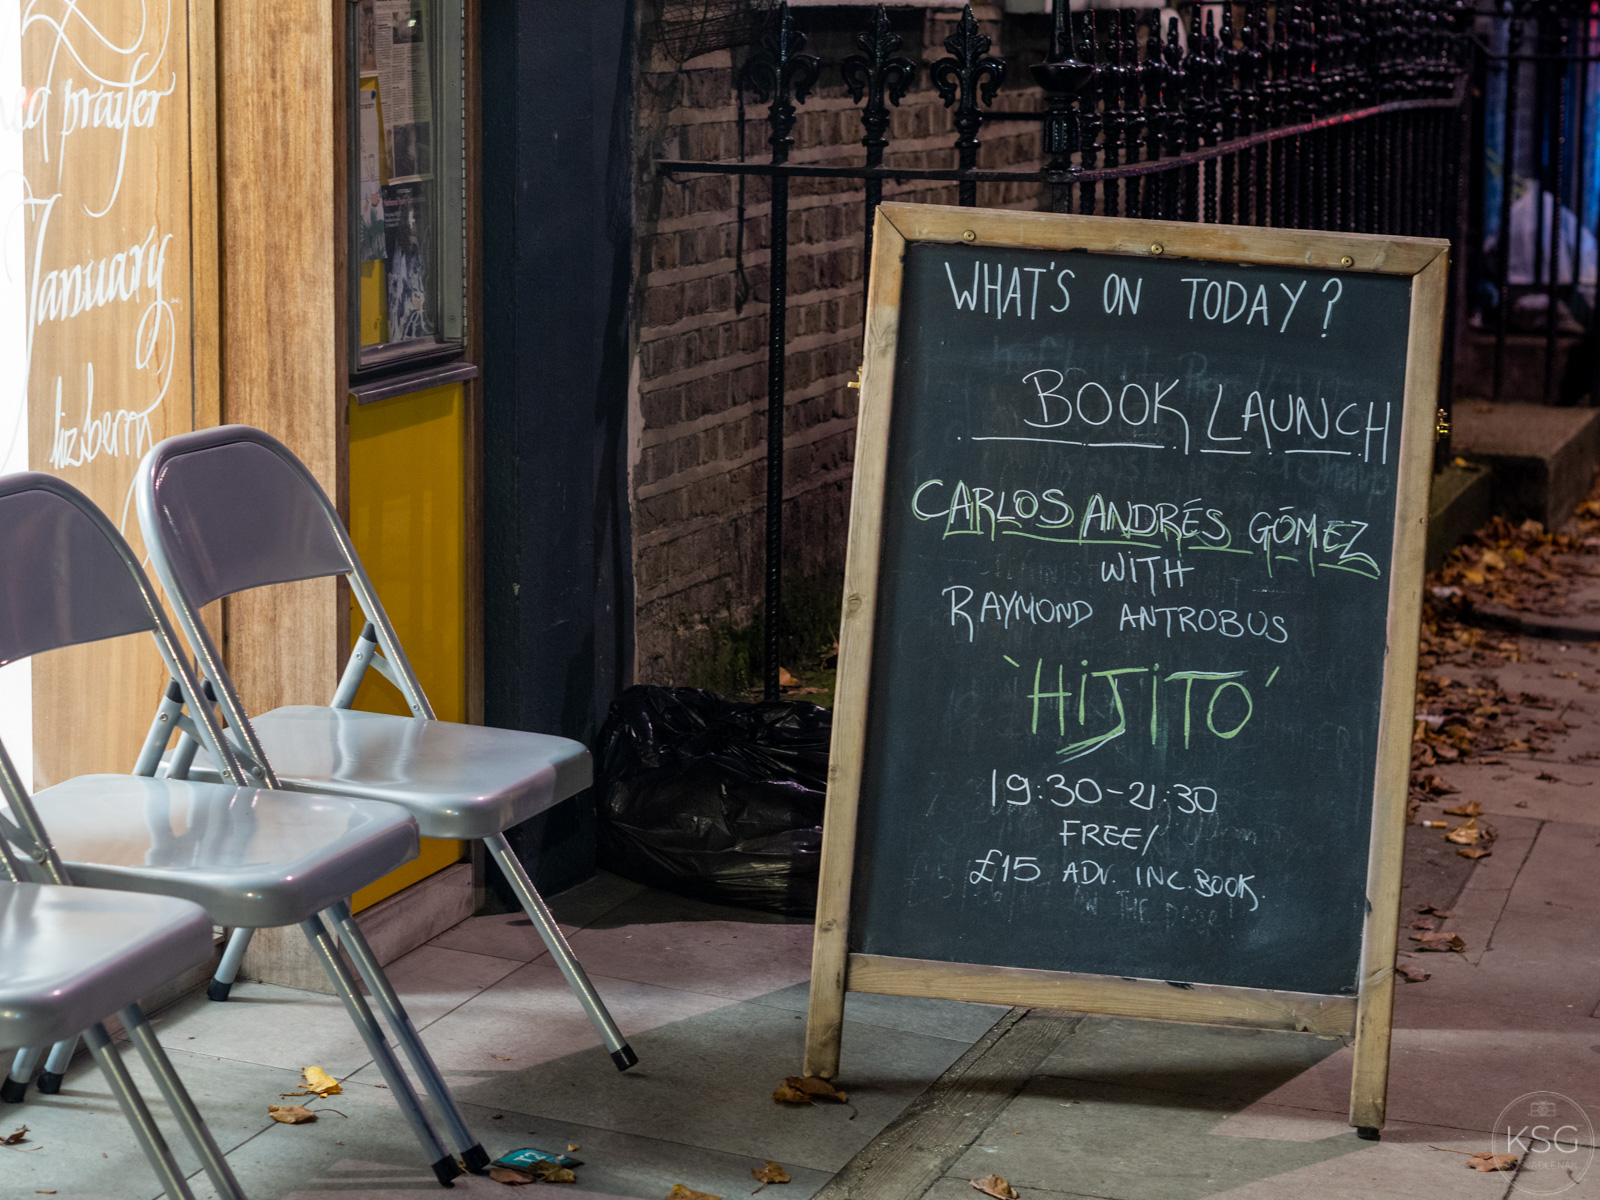 prayer
January
liz berry
WHAT'S ON TODAY?
BOOK LAUNCH
CARLOS ANDRÉS GÓMEZ
WITH
RAYMOND ANTROBUS
'HIJITO'
19:30-21:30
FREE/
£15 ADV. INC. BOOK.
KSG